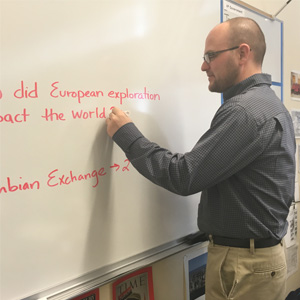 did European exploration
pact the world?
nbian Exchange → 2
TIME